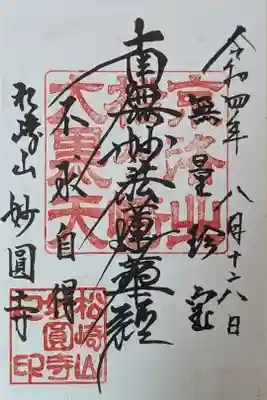 令和四年八月十六日
無量珍寳
南無妙法蓮華經
不求自得
松崎山妙圓寺
大黒天
松崎山
妙圓寺
之印